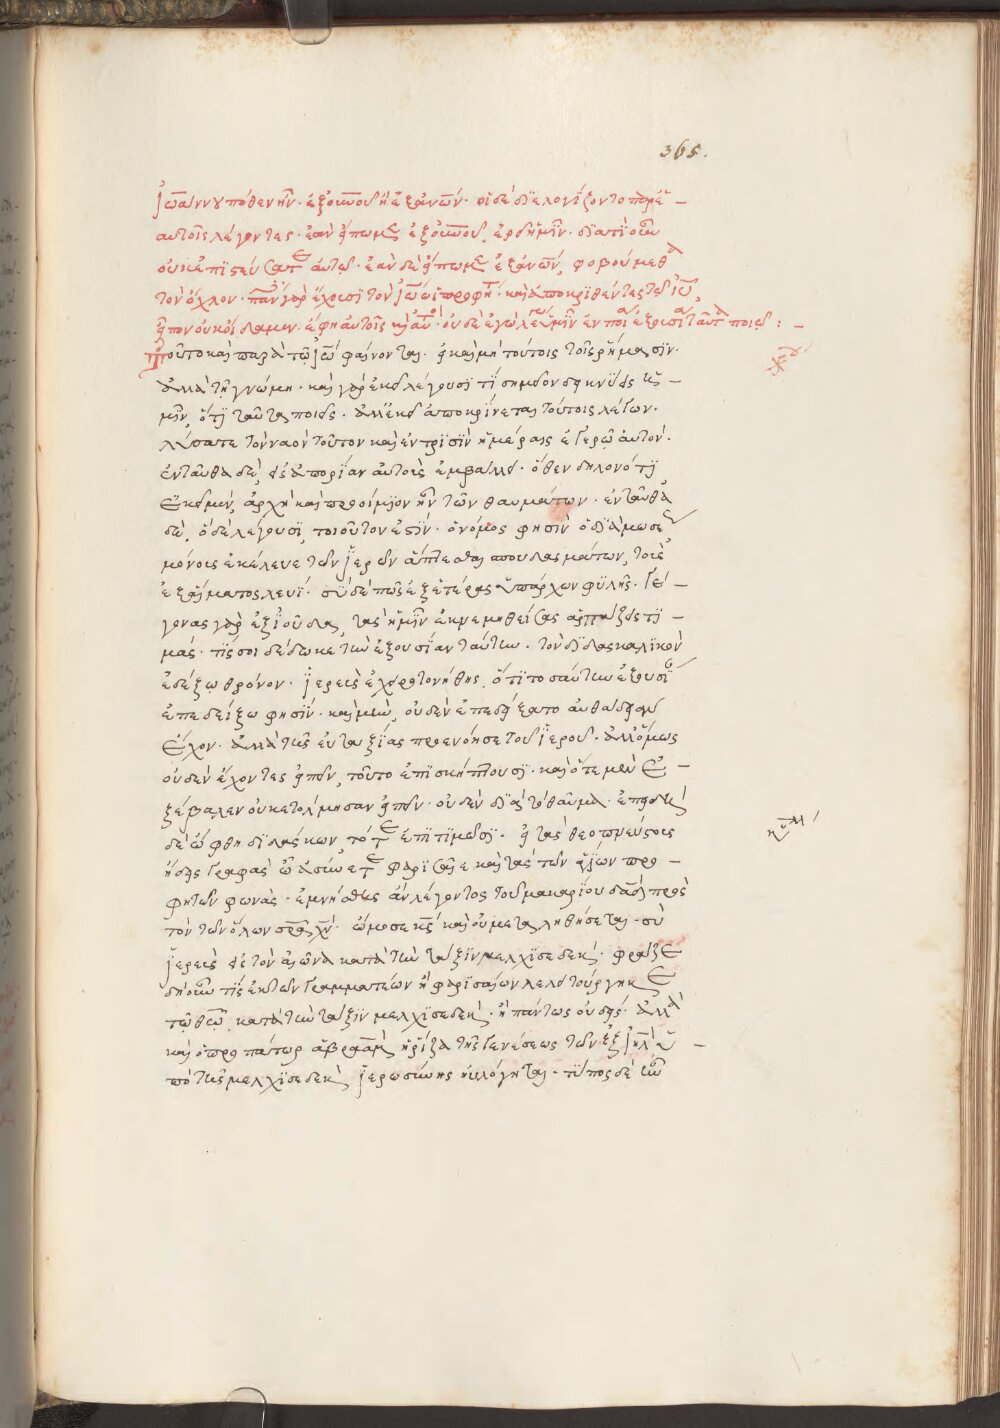 365.
Ἰωάννου πόθεν ἦν· ἐξ οὐνοῦ ἢ ἐξ ἀνῶν· οἱ δὲ διελογίζοντο παρ' ἑ
αυτοῖς λέγοντες· ἐὰν εἴπωμεν ἐξ οὐνοῦ, ἐρεῖ ἡμῖν· διατί οὖν
οὐκ ἐπιστεύσατε αὐτῷ· ἐὰν δὲ εἴπωμεν ἐξ ἀνῶν, φοβούμεθα
τὸν ὄχλον· πάντες γὰρ ἔχουσι τὸν Ἰωάννην ὡς προφήτην· καὶ ἀποκριθέντες τῷ ιῦ,
εἶπον οὐκ οἴδαμεν· ἔφη αὐτοῖς καὶ αὐτός· οὐδὲ ἐγὼ λέγω ὑμῖν ἐν ποίᾳ ἐξουσίᾳ ταῦτα ποιῶ: –
Τοῦτο καὶ παρὰ τῷ Ἰωάννῃ φαίνονται· εἰ καὶ μὴ τούτοις τοῖς ῥήμασιν·
ἀλλὰ τῇ γνώμῃ· καὶ γὰρ ἐκεῖ λέγουσι τί σημεῖον δεικνύεις ἡ
μῖν, ὅτι ταῦτα ποιεῖς· ἀλλ' ἐκεῖ ἀποκρίνεται τούτοις λέγων·
λύσατε τὸν ναὸν τοῦτον καὶ ἐν τρισὶν ἡμέραις ἐγερῶ αὐτόν·
ἐνταῦθα δὲ, εἰς ἀπορίαν αὐτοὺς ἐμβάλλει· ὅθεν δηλονότι
ἐκεῖ μὲν, ἀρχὴ καὶ προοίμιον ἦν τῶν θαυμάτων· ἐνταῦθα
δὲ, ὃ δὲ λέγουσι, τοιοῦτον ἐστίν· ὁ νόμος φησὶν ὁ διὰ μωσέως
μόνοις ἐκέλευε τῶν ἱερῶν ἅπτεσθαι σπουδασμάτων, τοῖς
ἐξ αἵματος λευί· σὺ δέ πως ἐξ ἑτέρας ὑπάρχων φυλῆς· γέ
γονας γὰρ ἐξ ἰούδα, τὰς ἡμῖν ἐκνεμηθείσας ἁρπάζεις τι
μάς· τίς σοι δέδωκε τὴν ἐξουσίαν ταύτην· τὸν διδασκαλικὸν
ἐδέξω θρόνον· ἱερεὺς ἐχειροτονήθης, ὅτι τοσαύτην ἐξουσίαν
ἐπεδείξω φησίν· καὶ μὴν, οὐδὲν ἐπεδείξατο αὐθαδείας
ἔχον· ἀλλὰ τῆς εὐταξίας προενόησε τοῦ ἱεροῦ· ἀλλ' ὅμως
οὐδὲν ἔχοντες εἰπεῖν, τοῦτο ἐπισκήπτουσι· καὶ ὅτε μὲν ἐ
ξέβαλεν οὐκ ἐτόλμησαν εἰπεῖν· οὐδὲν διὰ τὸ θαῦμα· ἐπειδὴ
δὲ ὤφθη διδάσκων, τότε ἐπιτιμῶσι· εἰ τὰς θεοπνεύστους
ᾔδεις γραφὰς ὦ ἀσύνετε φαρισαῖε καὶ τὰς τῶν ἁγίων προ
φητῶν φωνάς· ἐμνήσθης ἂν λέγοντος τοῦ μακαρίου δαδ πρὸς
τὸν τῶν ὅλων σρα χν· ὤμοσε κς καὶ οὐ μεταμεληθήσεται· σὺ
ἱερεὺς εἰς τὸν αἰῶνα κατὰ τὴν τάξιν μελχισεδέκ· φράζε
δὴ οὖν τίς ἐκ τῶν γραμματέων ἢ φαρισαίων λελειτούργηκε
τῷ θεῷ κατὰ τὴν τάξιν μελχισεδέκ· ἢ πάντως οὐδείς· ἀλλὰ
καὶ ὁ προπάτωρ ἀβραὰμ ἡ ῥίζα τῆς γενέσεως τῶν ἐξ ιηλ ὑ
πὸ τῆς μελχισεδὲκ ἱερωσύνης ηὐλόγηται· τύπος δὲ τῶν